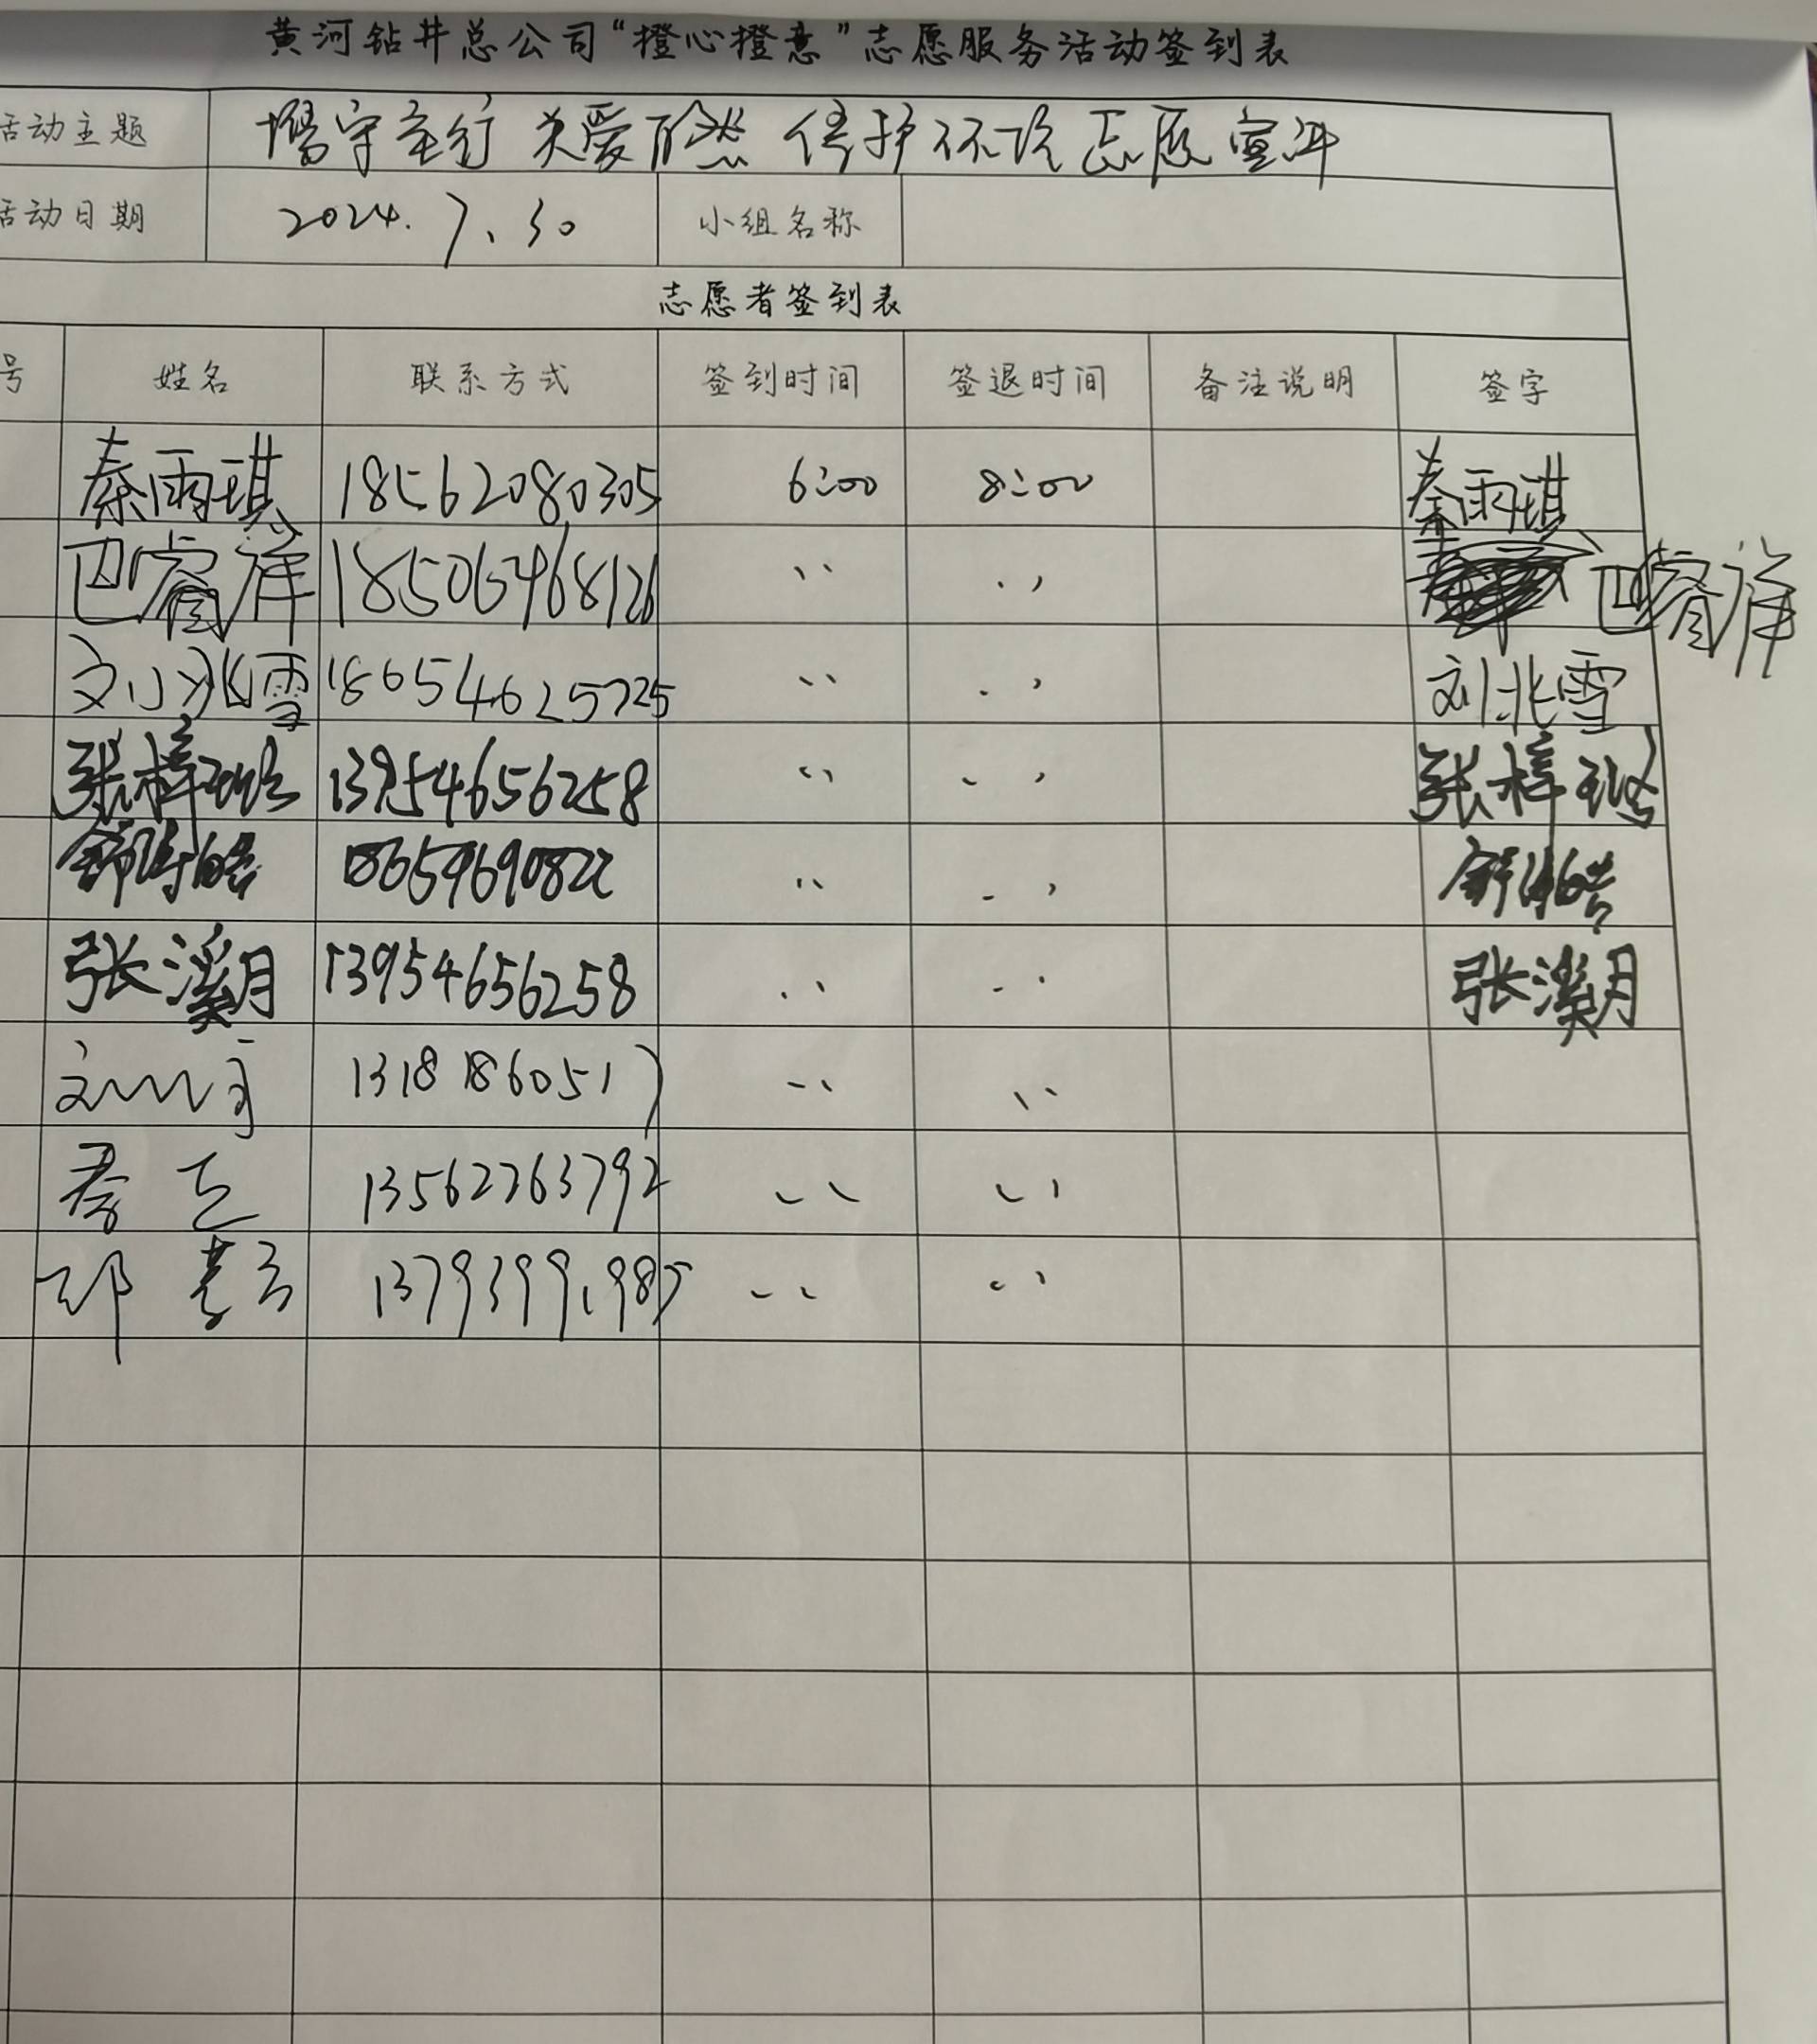 黄河钻井总公司“橙心橙意”志愿服务活动签到表
活动主题 关爱自然 志愿宣讲
活动日期 2024.7.30 小组名称
志愿者签到表
号 姓名 联系方式 签到时间 签退时间 备注说明 签字
秦雨琪 18562080305 6:00 8:00 秦雨琪
巴睿洋 185064968126 〃 〃 巴睿洋
刘兆雪 18654625725 〃 〃 刘兆雪
张梓 13954656258 〃 〃 张梓
舒 皓 〃 〃 舒 皓
张溪月 13954656258 〃 〃 张溪月
13181860517 〃 〃
13562263792 〃 〃
邓 13793991985 〃 〃